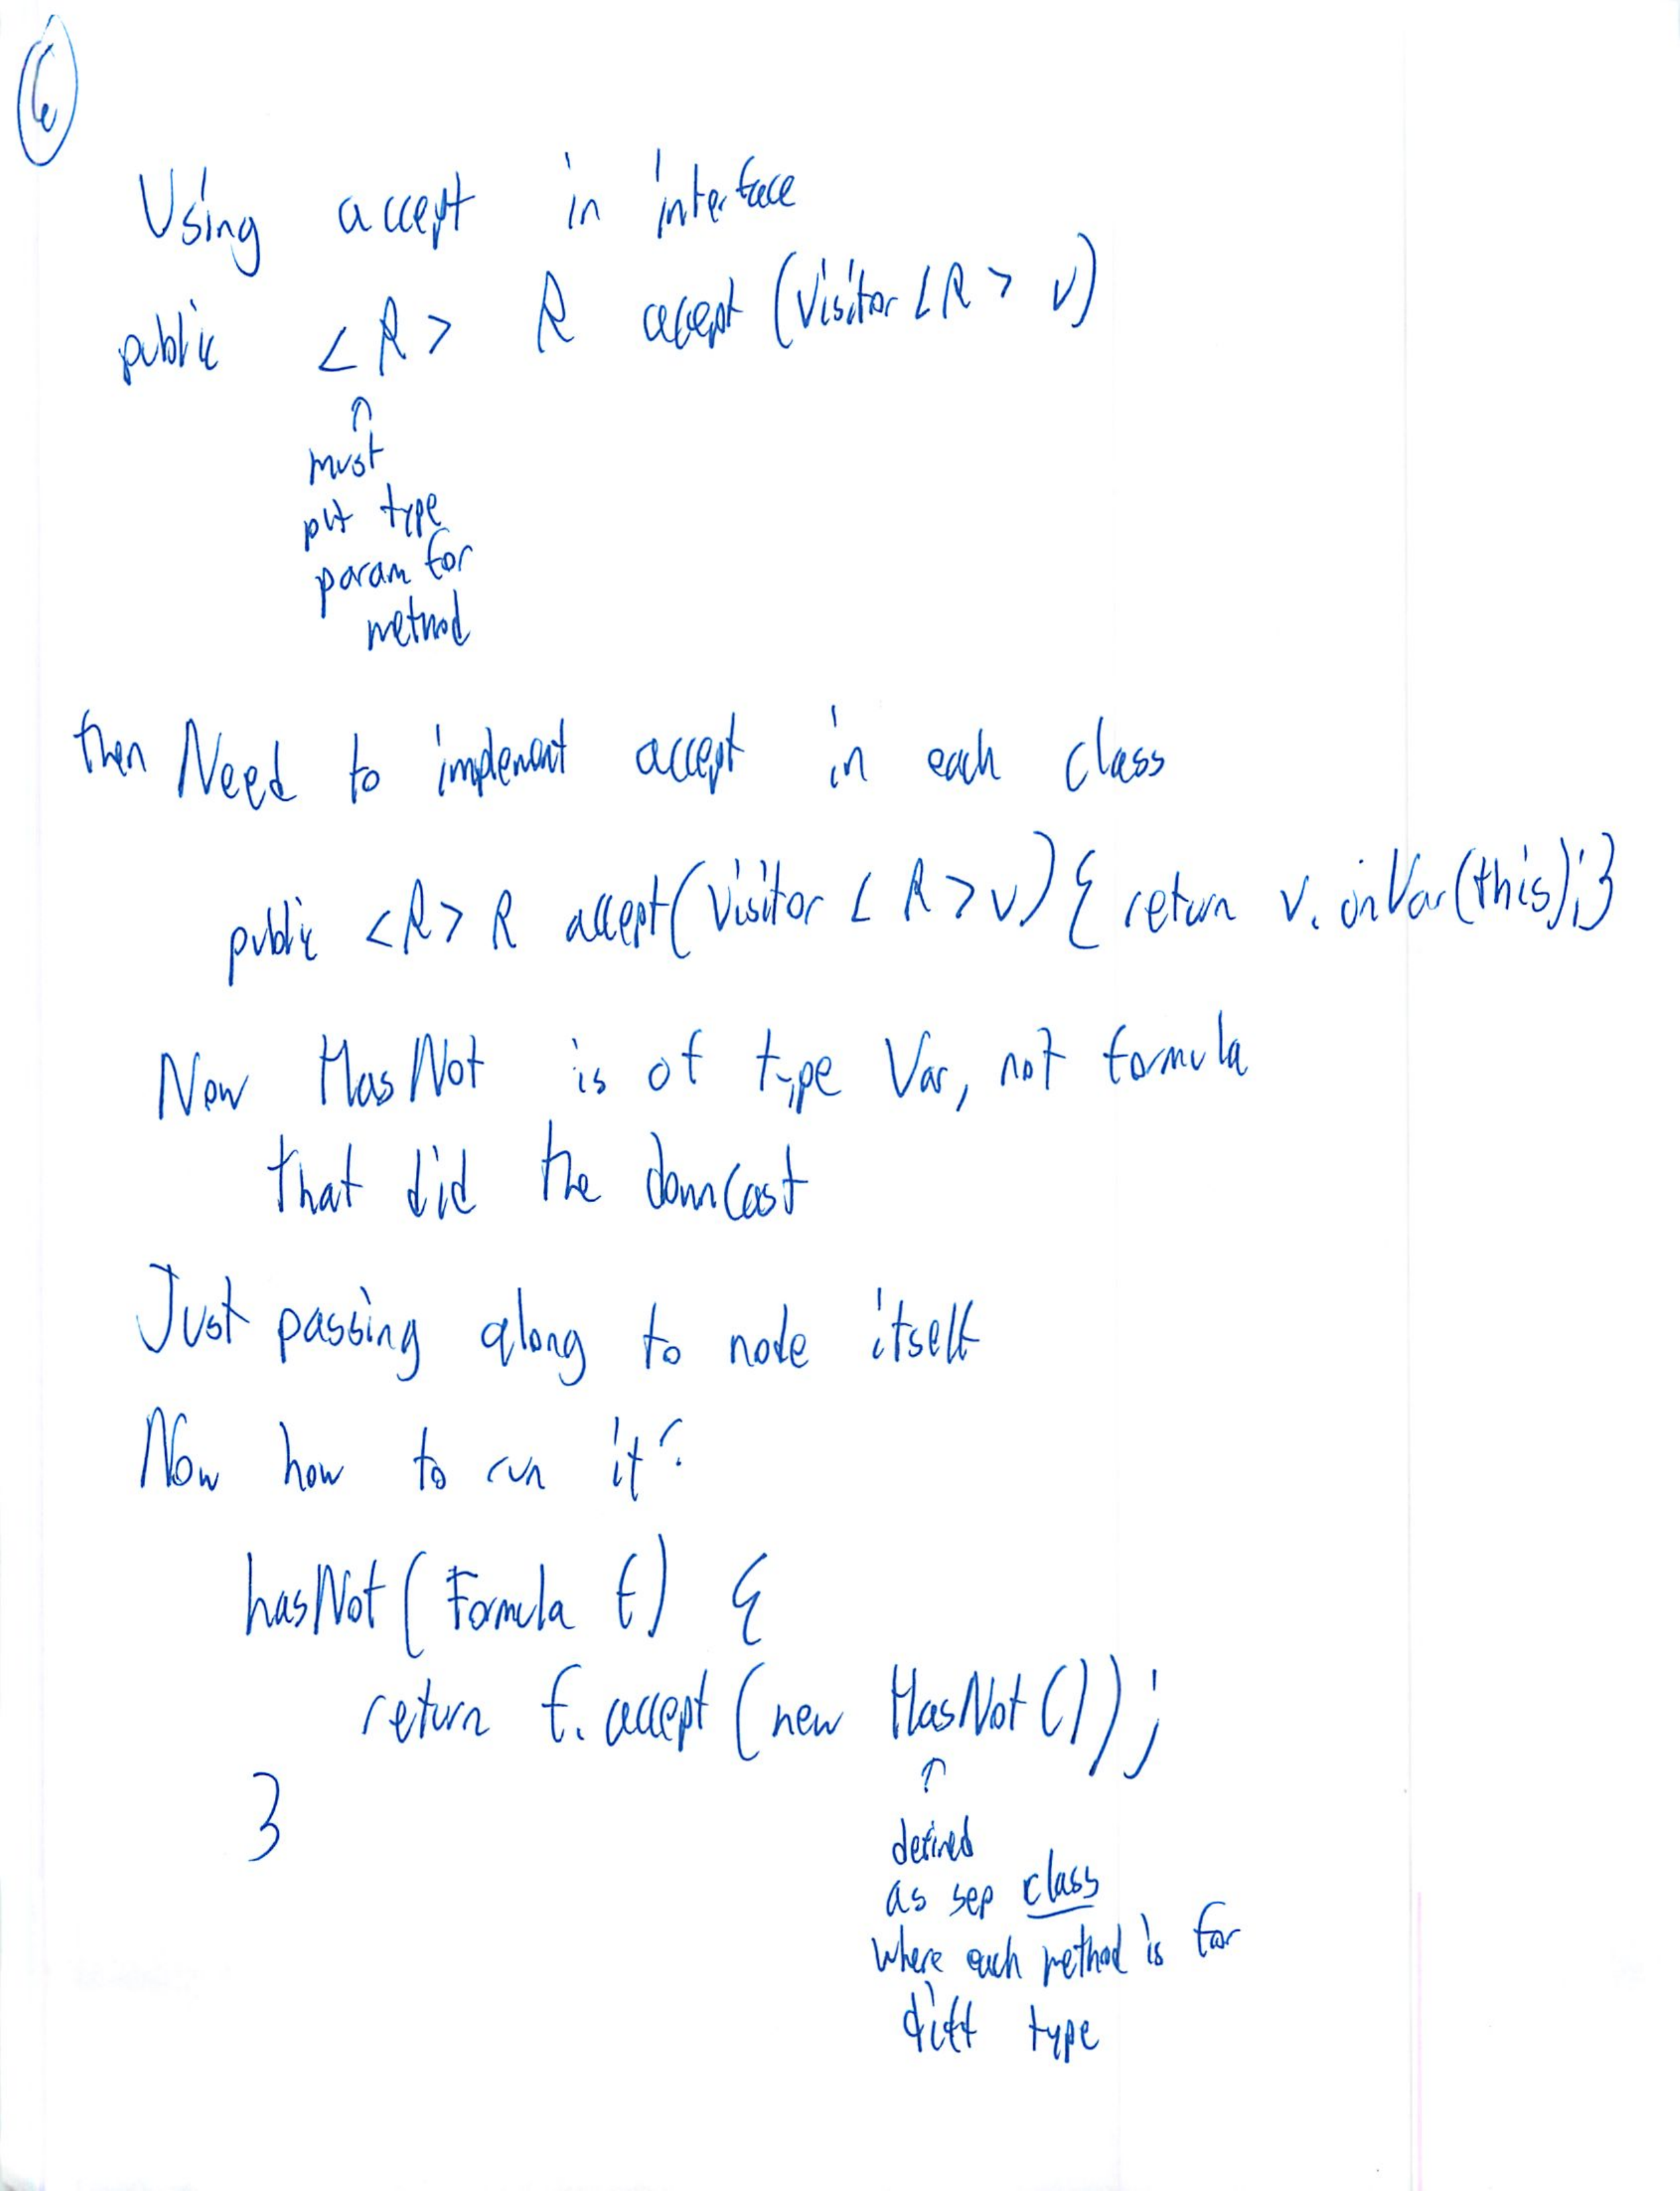 6
Using accept in interface
public <R> R accept (Visitor <R> v)
↑
must
put type
param for
method
then Need to implement accept in each class
public <R> R accept(Visitor <R> v) { return v.onVar(this);}
Now HasNot is of type Var, not formula
that did the downcast
Just passing along to node itself
Now how to run it?
hasNot (Formula f) {
return f.accept (new HasNot());
}
↑
defined
as sep class
where each method is for
diff type